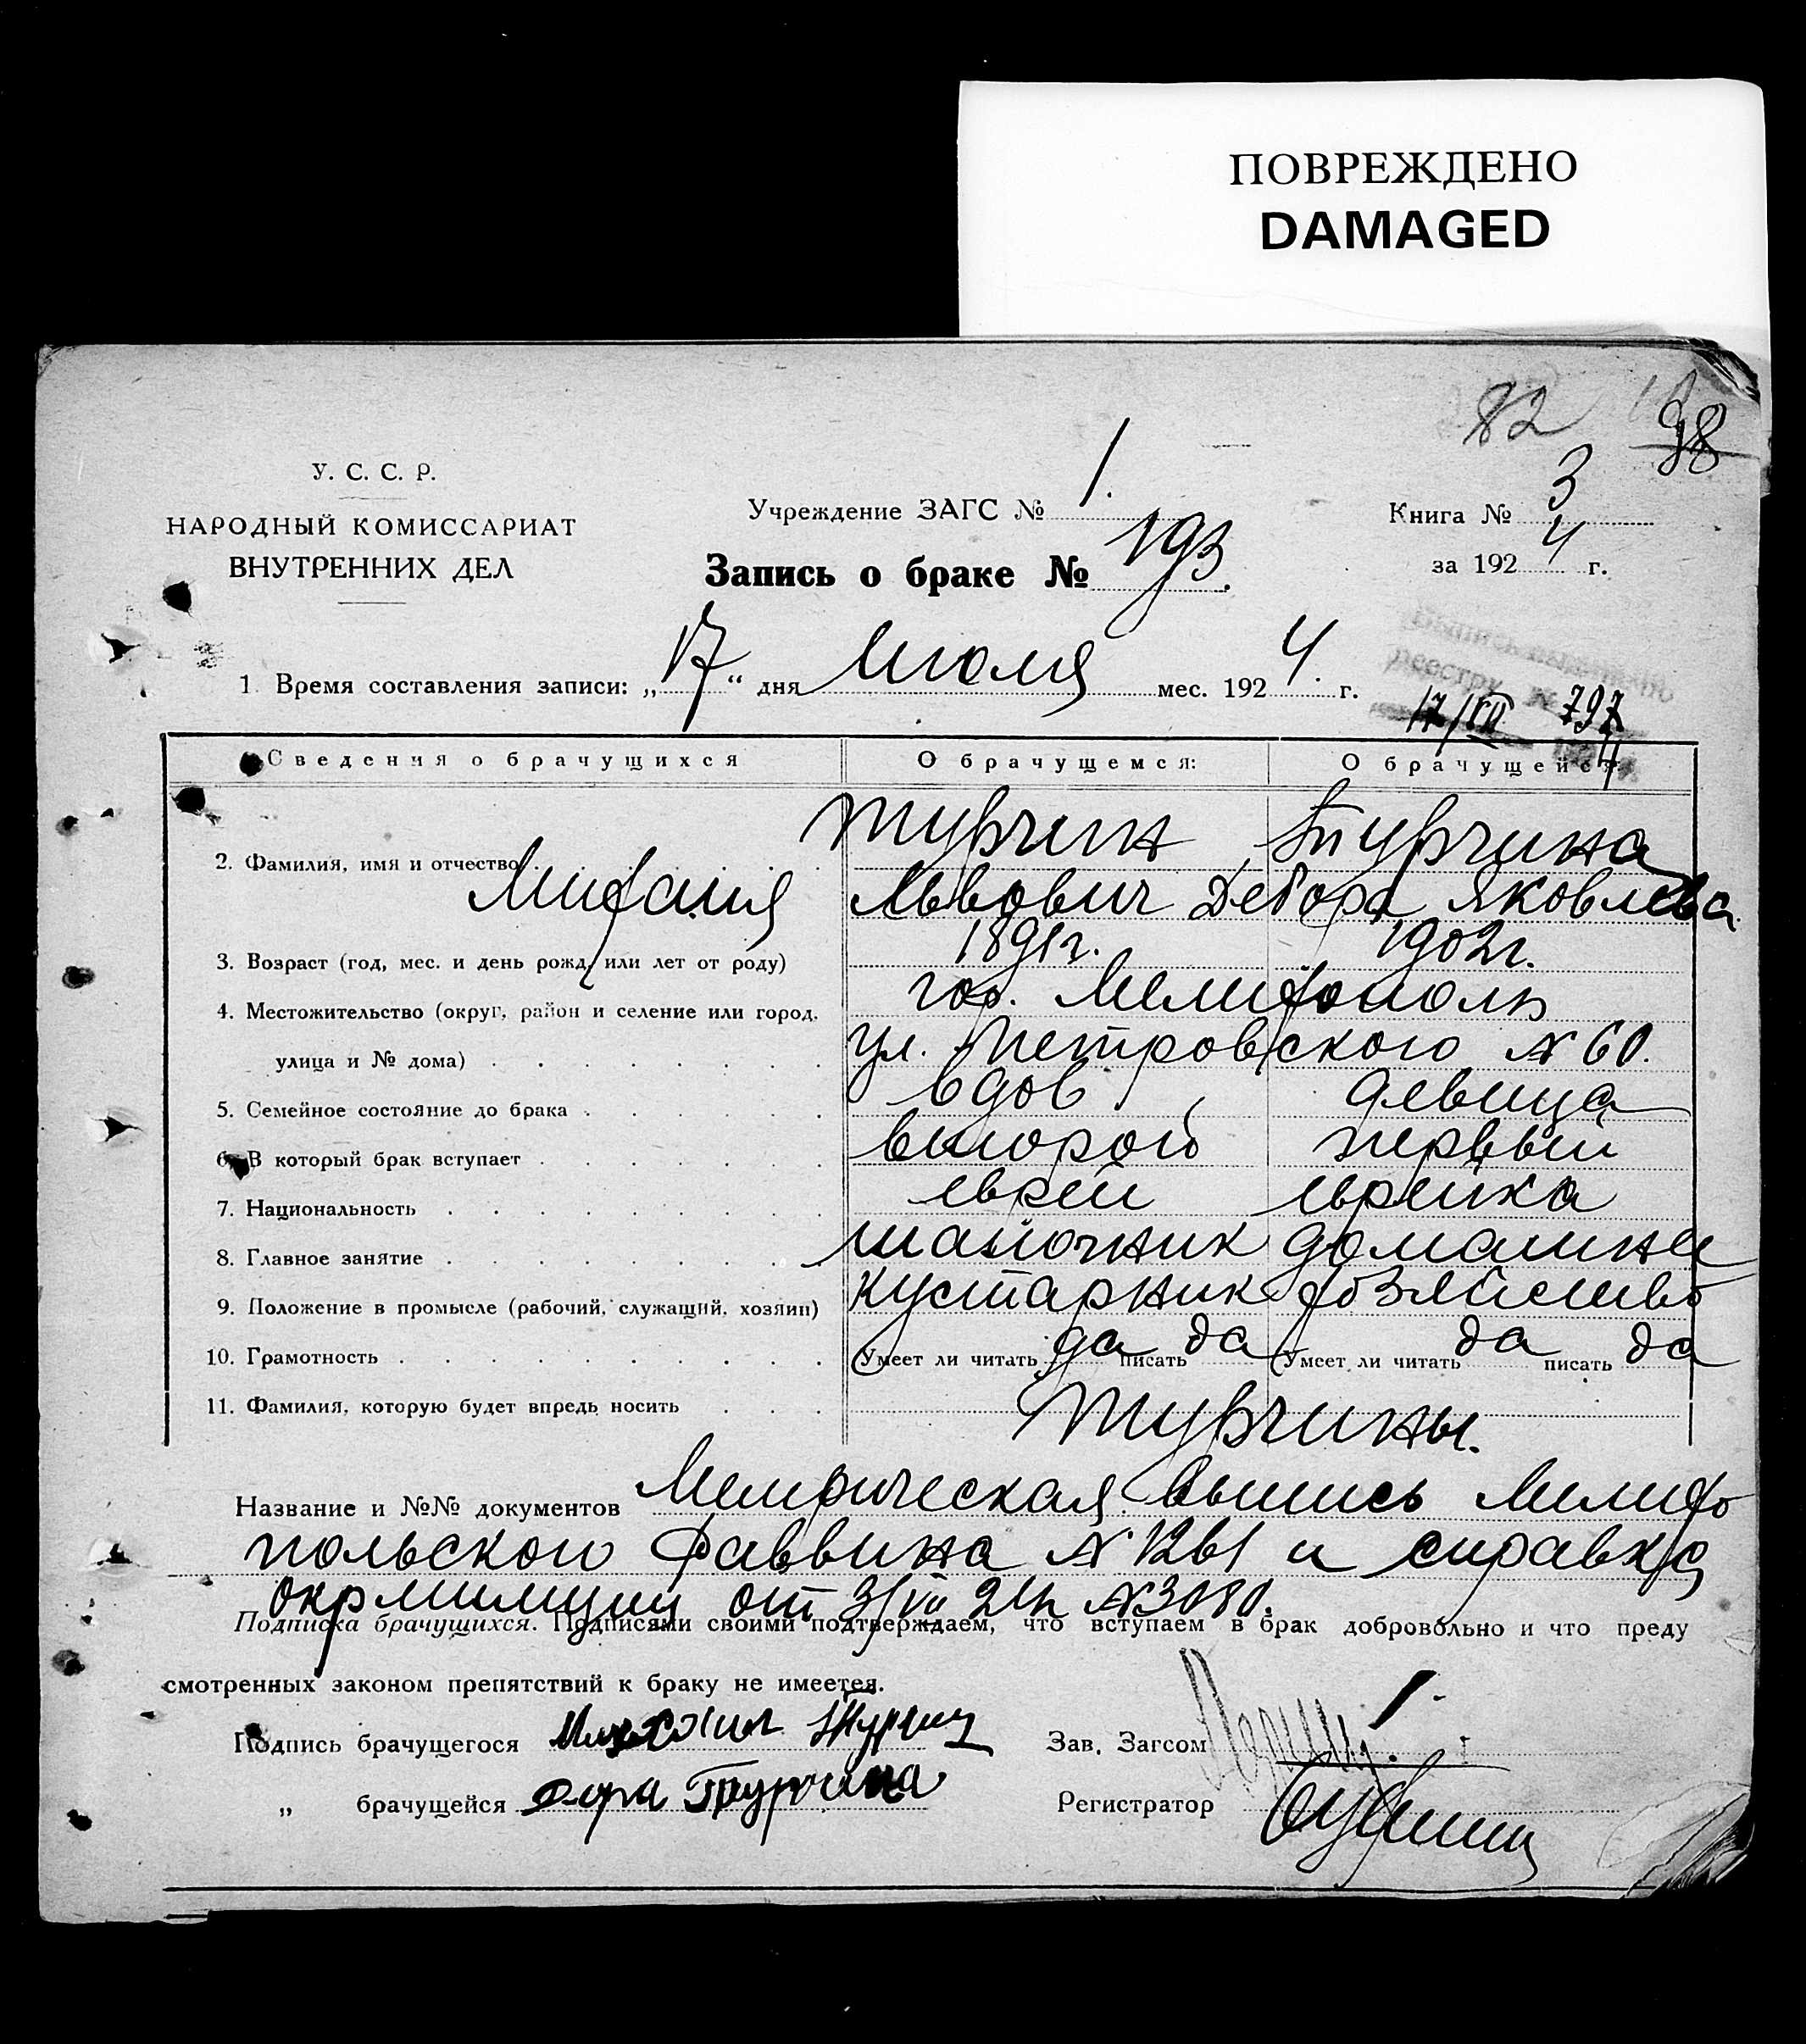 ПОВРЕЖДЕНО
DAMAGED
82
98
У. С. С. Р.
НАРОДНЫЙ КОМИССАРИАТ
ВНУТРЕННИХ ДЕЛ
Учреждение ЗАГС № 1.
Книга № 3
за 1924 г.
Запись о браке № 193.
1. Время составления записи: „17“ дня Июля мес. 1924. г.
реестру №
17/VII 797
Сведения о брачущихся О брачущемся: О брачущейся
Турчин Турчина
2. Фамилия, имя и отчество
Михаил Львович Дебора Яковлева
3. Возраст (год, мес. и день рожд. или лет от роду) 1891г. 1902г.
4. Местожительство (округ, район и селение или город, гор. Мелитополь
улица и № дома) ул. Петровского №60.
5. Семейное состояние до брака вдов девица
6. В который брак вступает второй первый
7. Национальность еврей еврейка
8. Главное занятие шапочник домашнее
9. Положение в промысле (рабочий, служащий, хозяин) кустарник хозяйство
10. Грамотность Умеет ли читать да писать да Умеет ли читать да писать да
11. Фамилия, которую будет впредь носить Турчины.
Название и №№ документов Метрическая выпись Мелито
польского Раввина №1261 и справка
окрмилиции от 3/VII 24г №3080.
Подписка брачущихся. Подписями своими подтверждаем, что вступаем в брак добровольно и что преду
смотренных законом препятствий к браку не имеется.
Подпись брачущегося Михаил Турчин
Зав. Загсом
„ брачущейся Дора Турчина
Регистратор